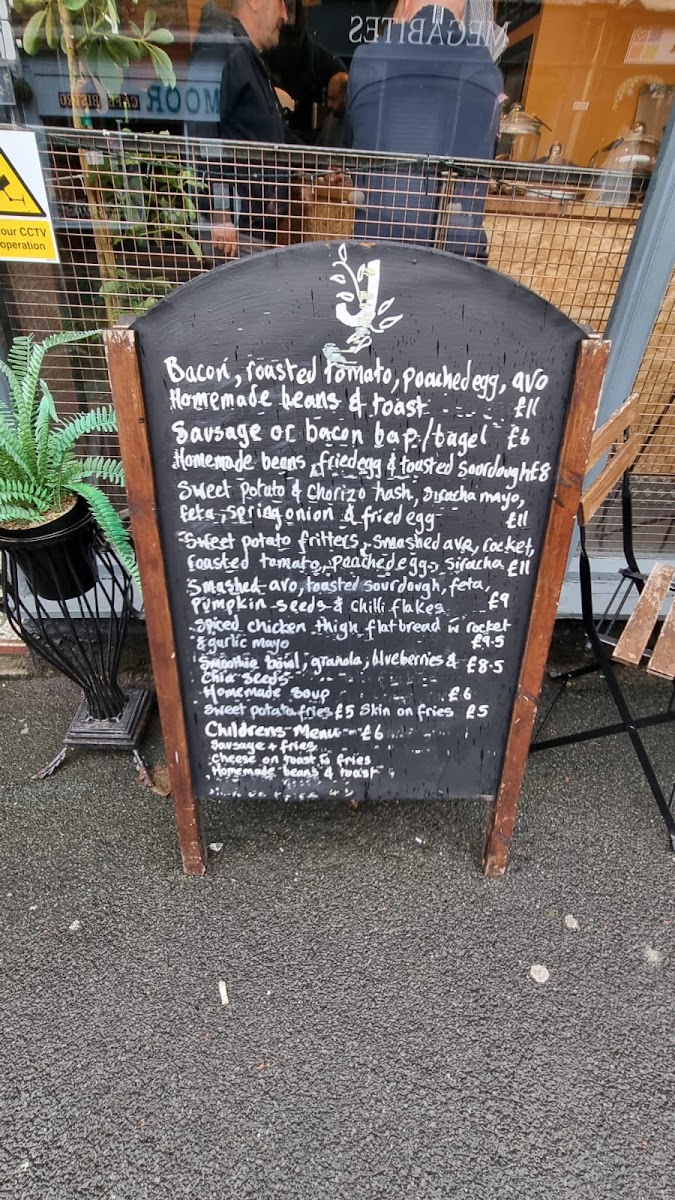 MEGABITES
MOOR
CAFE BISTRO
our CCTV
operation
J
Bacon, roasted tomato, poached egg, avo
Homemade beans & toast £11
Sausage or bacon bap/bagel £6
Homemade beans, fried egg & toasted sourdough £8
Sweet potato & chorizo hash, siracha mayo,
feta, spring onion & fried egg £11
Sweet potato fritters, smashed avo, rocket,
roasted tomato, poached egg, siracha £11
Smashed avo, toasted sourdough, feta,
pumpkin seeds & chilli flakes £9
Spiced chicken thigh flatbread w rocket
& garlic mayo £9.5
Smoothie bowl, granola, blueberries & £8.5
Chia seeds
Homemade soup £6
Sweet potato fries £5 Skin on fries £5
Childrens Menu £6
Sausage + fries
Cheese on toast & fries
Homemade beans & toast